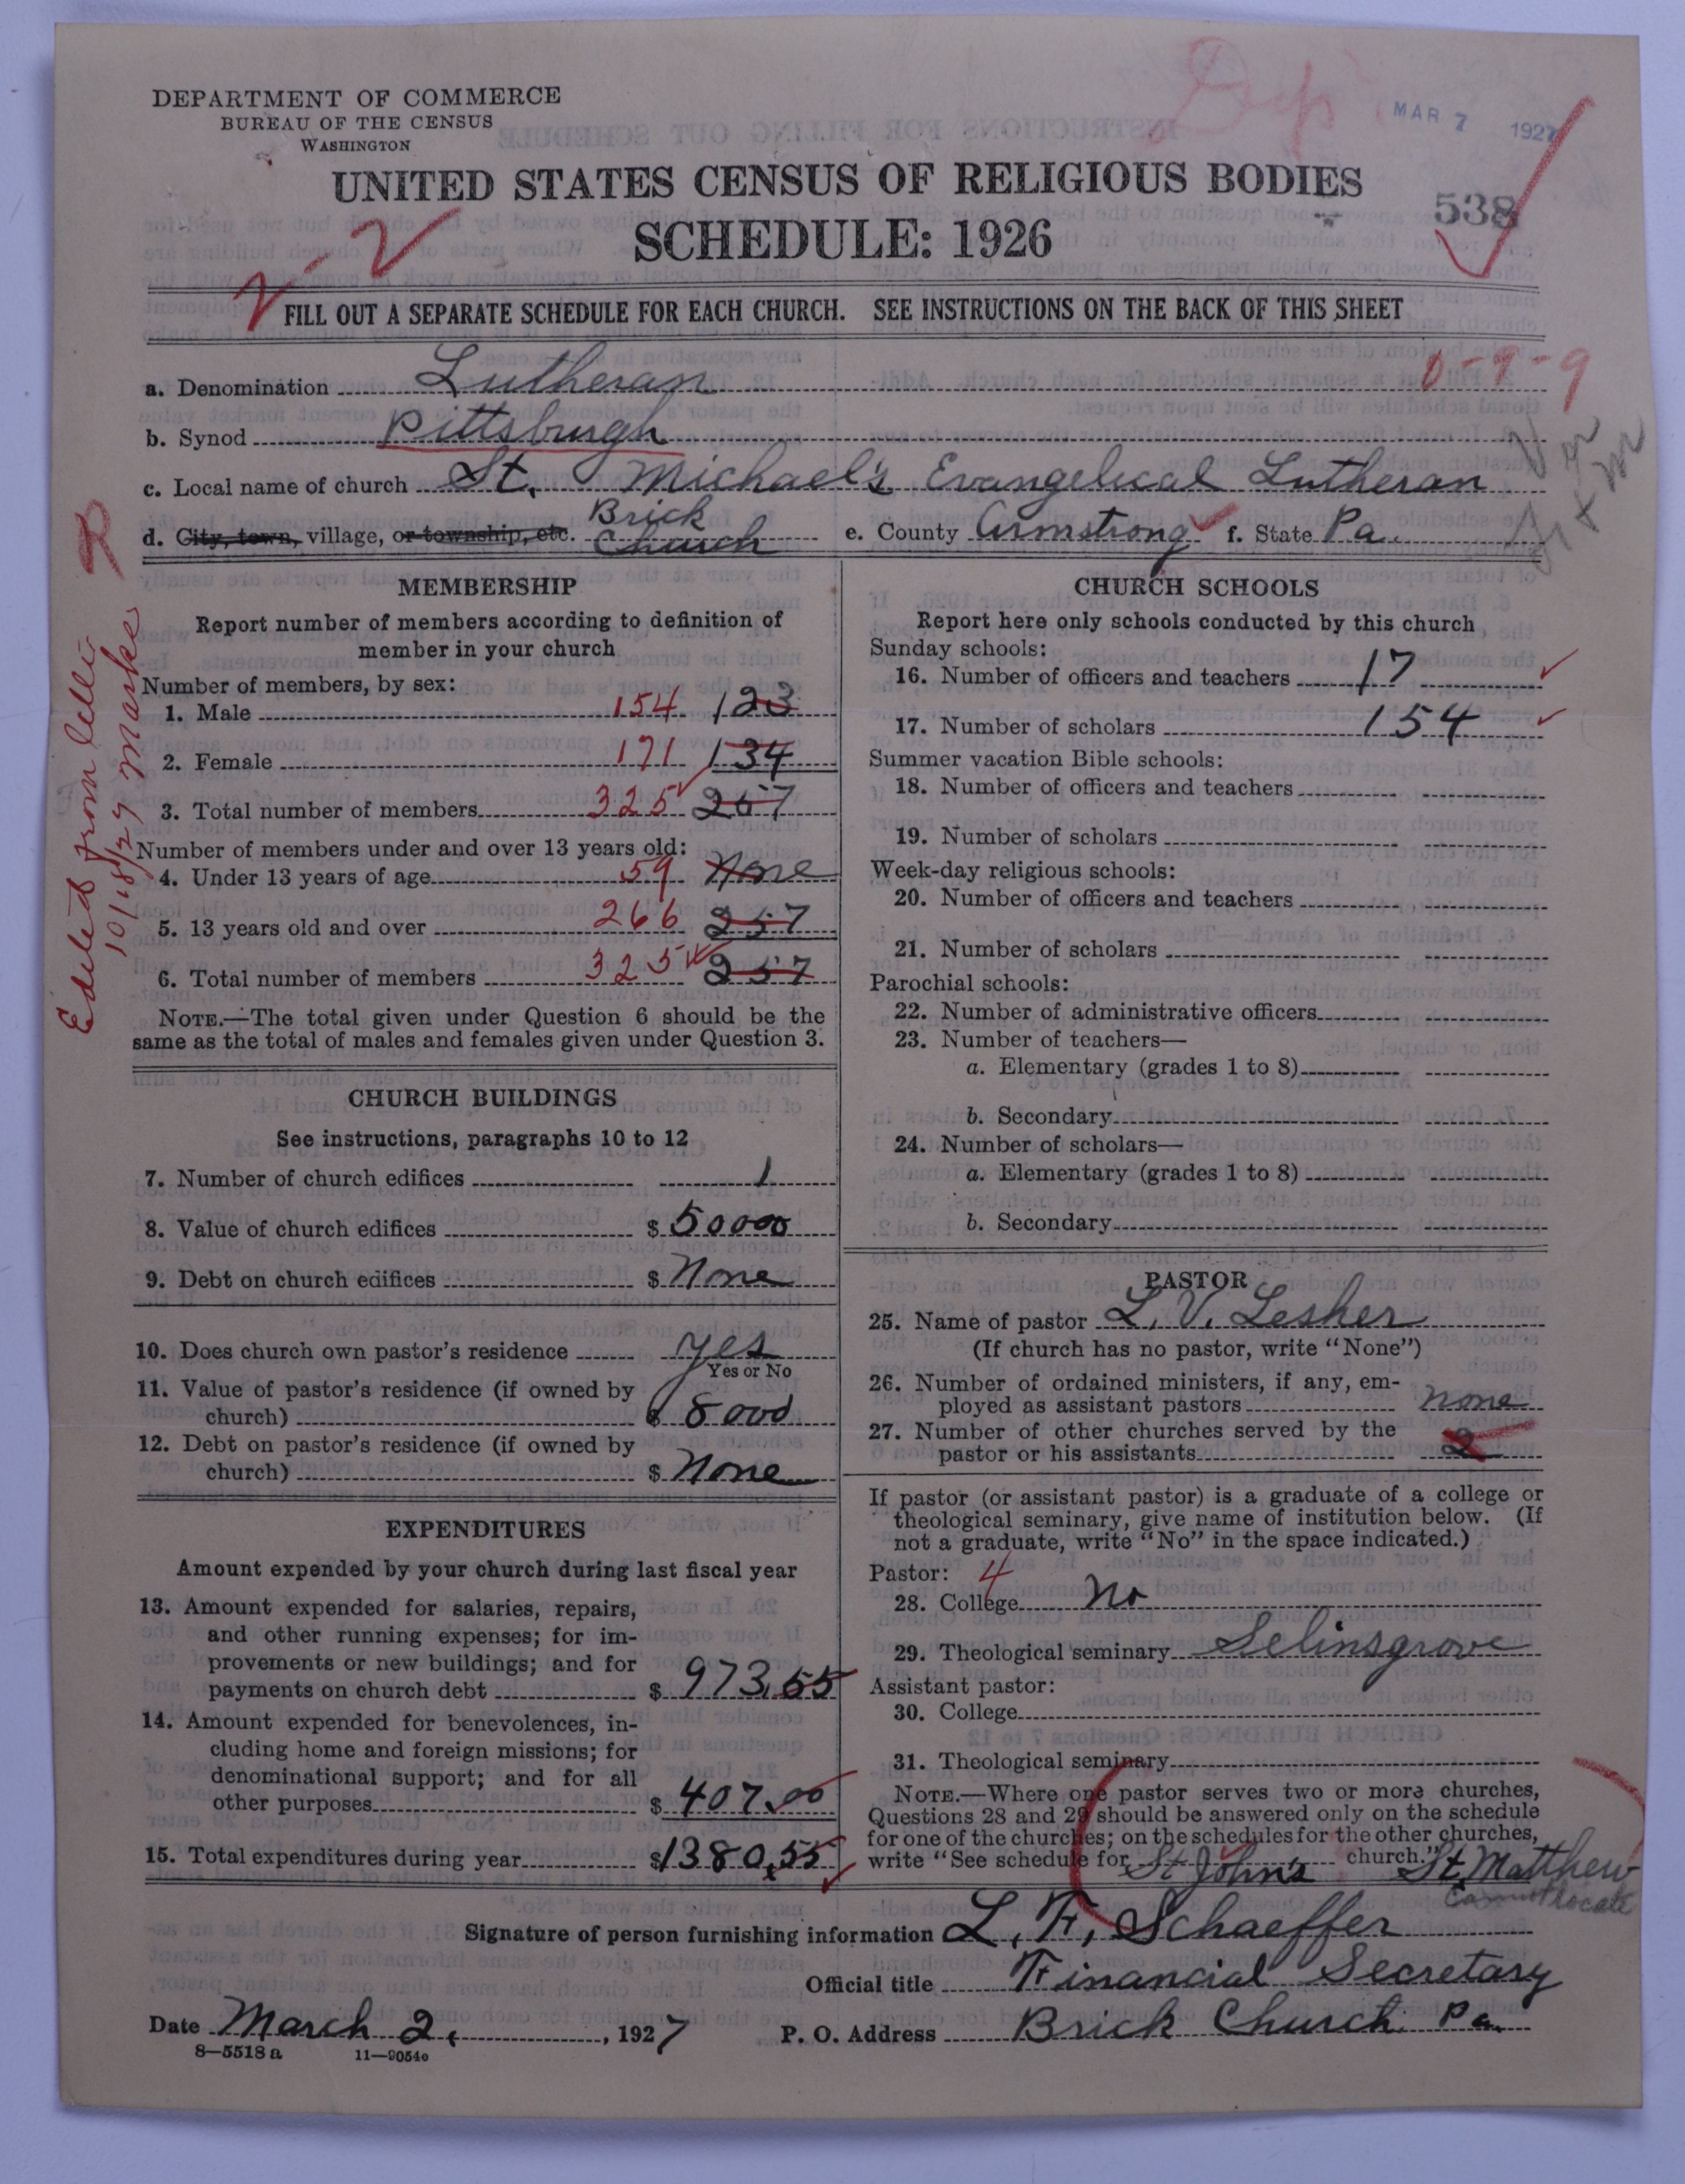 DEPARTMENT OF COMMERCE
BUREAU OF THE CENSUS
WASHINGTON
MAR 7 1927
UNITED STATES CENSUS OF RELIGIOUS BODIES
538
SCHEDULE: 1926
2-2
FILL OUT A SEPARATE SCHEDULE FOR EACH CHURCH. SEE INSTRUCTIONS ON THE BACK OF THIS SHEET
0-9-9
a. Denomination Lutheran
b. Synod Pittsburgh
c. Local name of church St. Michael's Evangelical Lutheran
d. City, town, village, or township, etc. Brick Church e. County Armstrong f. State Pa.
Edited from
10/18/27 Marke
MEMBERSHIP
Report number of members according to definition of
member in your church
Number of members, by sex:
1. Male 154 123
2. Female 171 134
3. Total number of members 325 257
Number of members under and over 13 years old:
4. Under 13 years of age 59 None
5. 13 years old and over 266 257
6. Total number of members 325 257
NOTE.—The total given under Question 6 should be the
same as the total of males and females given under Question 3.
CHURCH BUILDINGS
See instructions, paragraphs 10 to 12
7. Number of church edifices 1
8. Value of church edifices $ 50000
9. Debt on church edifices $ None
10. Does church own pastor's residence yes
Yes or No
11. Value of pastor's residence (if owned by
church) $ 8000
12. Debt on pastor's residence (if owned by
church) $ None
EXPENDITURES
Amount expended by your church during last fiscal year
13. Amount expended for salaries, repairs,
and other running expenses; for im-
provements or new buildings; and for
payments on church debt $ 973.55
14. Amount expended for benevolences, in-
cluding home and foreign missions; for
denominational support; and for all
other purposes $ 407.00
15. Total expenditures during year $1380.55
CHURCH SCHOOLS
Report here only schools conducted by this church
Sunday schools:
16. Number of officers and teachers 17
17. Number of scholars 154
Summer vacation Bible schools:
18. Number of officers and teachers
19. Number of scholars
Week-day religious schools:
20. Number of officers and teachers
21. Number of scholars
Parochial schools:
22. Number of administrative officers
23. Number of teachers—
a. Elementary (grades 1 to 8)
b. Secondary
24. Number of scholars—
a. Elementary (grades 1 to 8)
b. Secondary
PASTOR
25. Name of pastor L. V. Lesher
(If church has no pastor, write "None")
26. Number of ordained ministers, if any, em-
ployed as assistant pastors none
27. Number of other churches served by the
pastor or his assistants 2
If pastor (or assistant pastor) is a graduate of a college or
theological seminary, give name of institution below. (If
not a graduate, write "No" in the space indicated.)
Pastor: 4
28. College No
29. Theological seminary Selinsgrove
Assistant pastor:
30. College
31. Theological seminary
NOTE.—Where one pastor serves two or more churches,
Questions 28 and 29 should be answered only on the schedule
for one of the churches; on the schedules for the other churches,
write "See schedule for St John's church." St. Matthew
Cannot locate
Signature of person furnishing information L. F. Schaeffer
Official title Financial Secretary
Date March 2, 1927 P. O. Address Brick Church Pa.
8—5518a 11—9054o